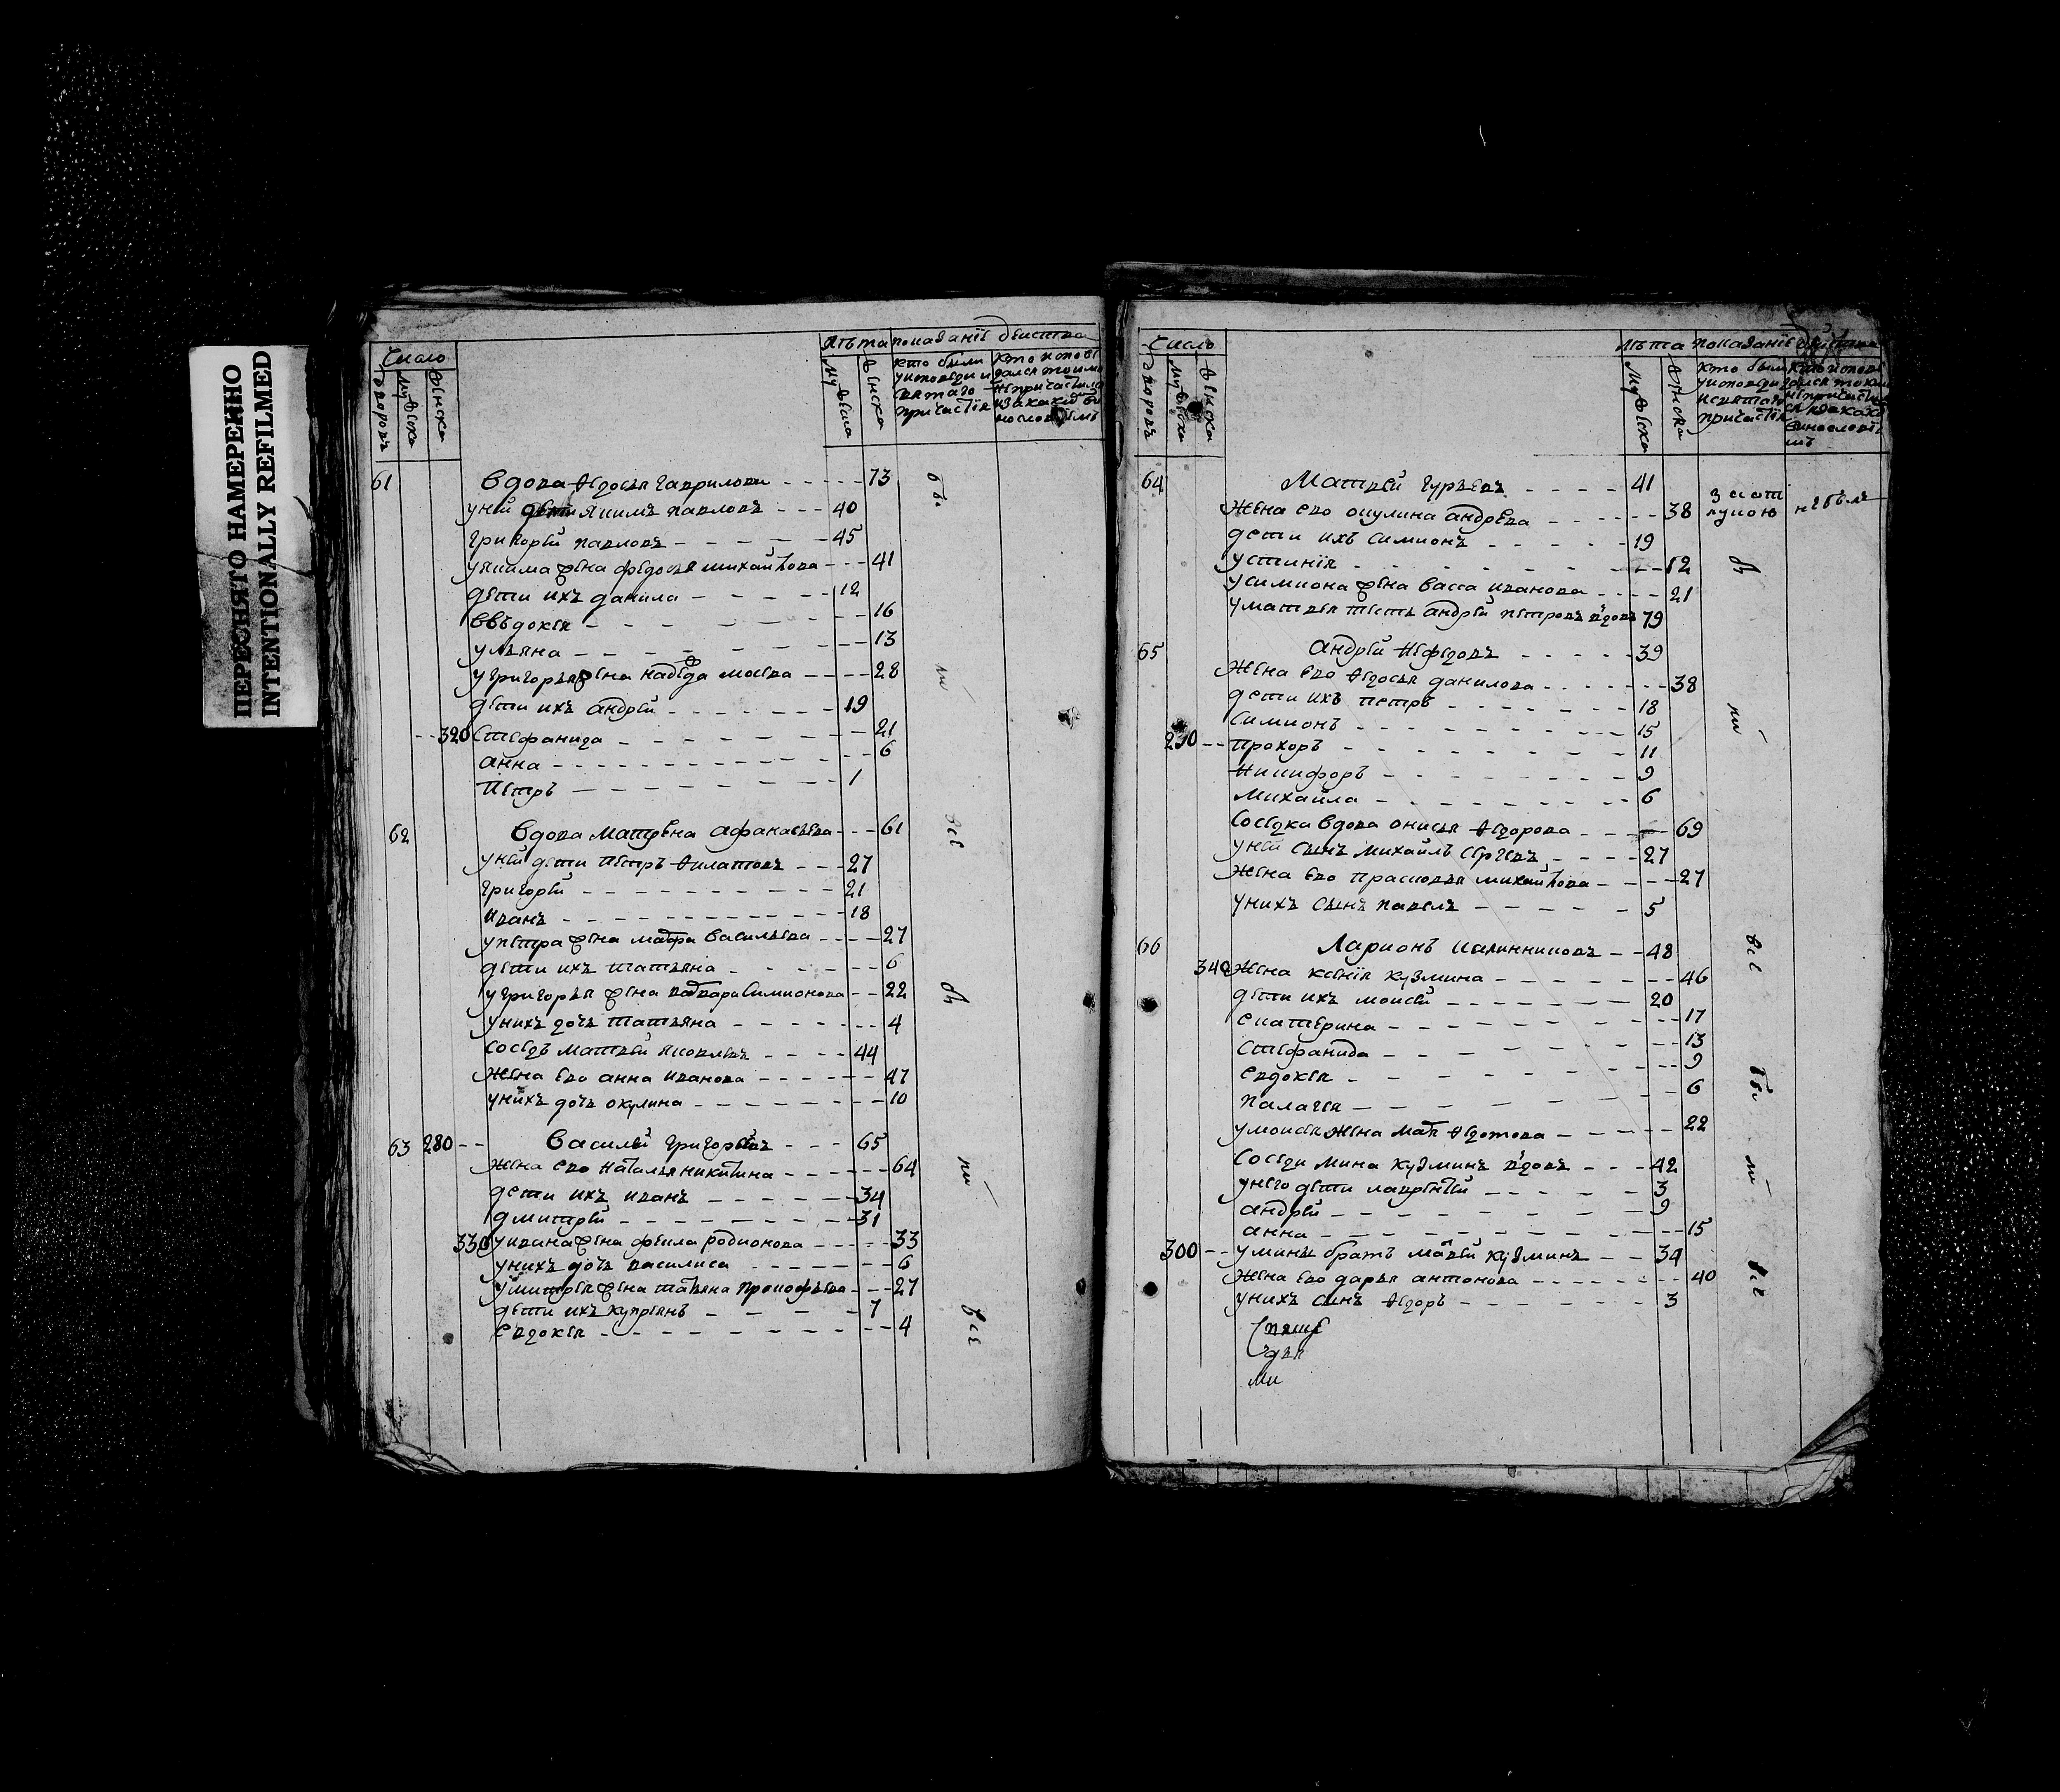 ПЕРЕСНЯТО НАМЕРЕННО
INTENTIONALLY REFILMED
Число лѣта показанїе дѣиства
дворовъ мужеска женска мужеска женска кто были у исповеди и святаго причастїя
61 Вдова Ѳедосья Гаврилова 73
у ней дети Яким Павловъ 40
Григорей Павловъ 45
у Якима жена Федосья Михайлова 41
дети ихъ Данила 12
Евъдокея 16
Ульяна 13
у Григорья жена Надежда Мосеева 28
дети ихъ Андрей 19
320 Стефанида 21
Анна 6
Петръ 1
62 Вдова Матрена Афанасьева 61
у ней дети Петръ Филатовъ 27
Григорей 21
Иванъ 18
у Петра жена Мавра Васильева 27
дети ихъ Татьяна 6
у Григорья жена Варвара Симионова 22
у нихъ дочь Татьяна 4
Соседъ Матвей Яковлевъ 44
Жена ево Анна Иванова 47
у нихъ дочь Окулина 10
63 280 Василей Григорьевъ 65
Жена ево Наталья Никитина 64
дети ихъ Иванъ 34
Дмитрей 31
330 у Ивана жена Фекла Родионова 33
у нихъ дочь Василиса 6
у Дмитрея жена Татьяна Прокофьева 27
дети ихъ Куприянъ 7
Евдокея 4
были все
были все
Число лѣта показанїе
дворовъ мужеска женска мужеска женска кто были у исповеди и святаго причастїя
64 Матвей Гурьевъ 41 не былъ
Жена ево Окулина Андрева 38
дети ихъ Симионъ 19
Устинїя 12
у Симиона жена Васса Иванова 21
у Матвея тесть Андрей Петровъ вдовъ 79
65 Андрей Нефедовъ 39
Жена ево Ѳедосья Данилова 38
дети ихъ Петръ 18
Симионъ 15
290 Прохоръ 11
Никифоръ 9
Михайла 6
Соседка вдова Онисья Ѳедорова 69
у ней сынъ Михайлъ Сергевъ 27
Жена ево Прасковья Михайлова 27
у нихъ сынъ Павелъ 5
66 Ларионъ Калинниковъ 48
340 Жена Ксенїя Кузмина 46
дети ихъ Моисей 20
Екатерина 17
Стефанида 13
Евдокея 9
Палагея 6
у Моисея жена Федотова 22
Соседи Мина Кузминъ вдовъ 42
у него дети Лаврентей 3
Андрей 9
Анна 15
300 у Мины братъ Матвей Кузминъ 34
Жена ево Дарья Антонова 40
у нихъ сынъ Ѳедоръ 3
были все
были все